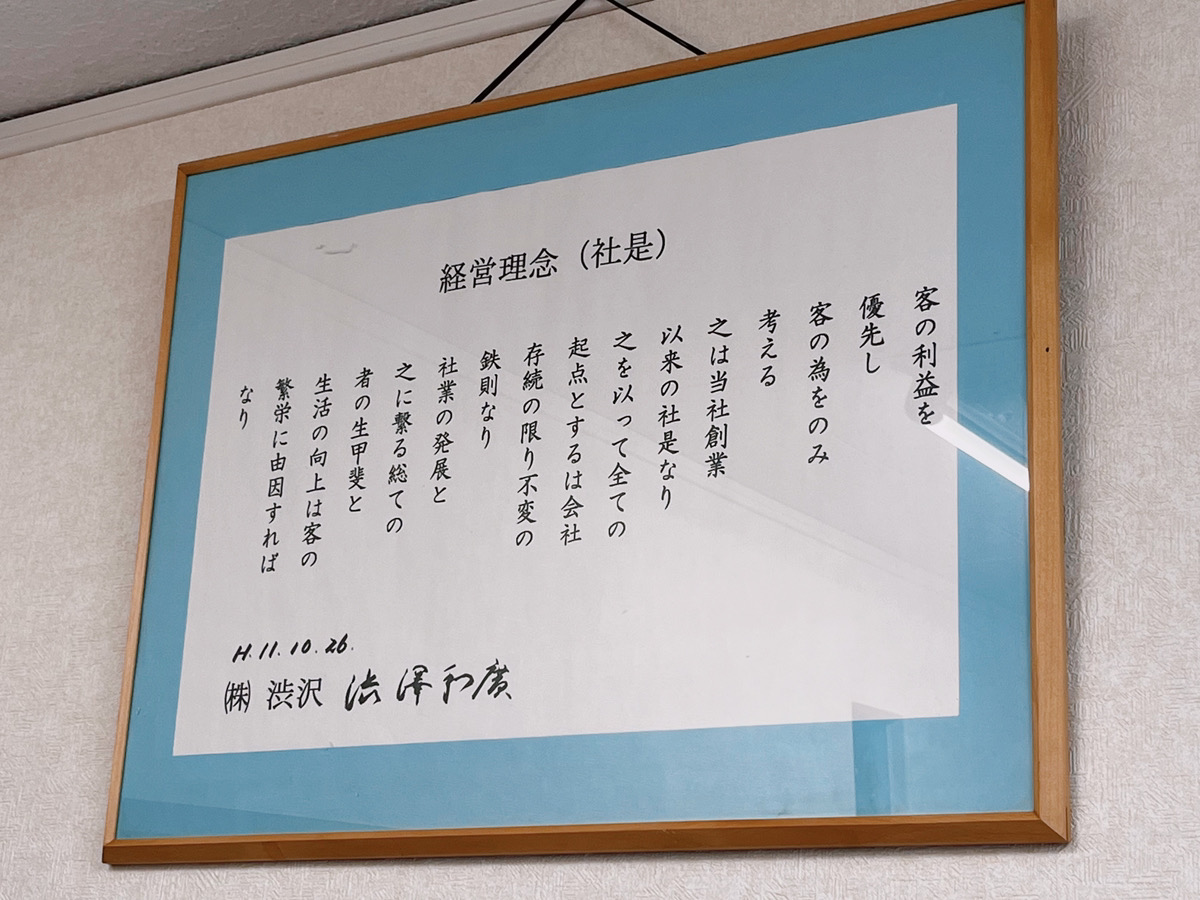 経営理念（社是）
客の利益を
優先し
客の為をのみ
考える
之は当社創業
以来の社是なり
之を以って全ての
起点とするは会社
存続の限り不変の
鉄則なり
社業の発展と
之に繋る総ての
者の生甲斐と
生活の向上は客の
繁栄に由因すれば
なり
H.11.10.26.
㈱ 渋沢 渋澤和廣